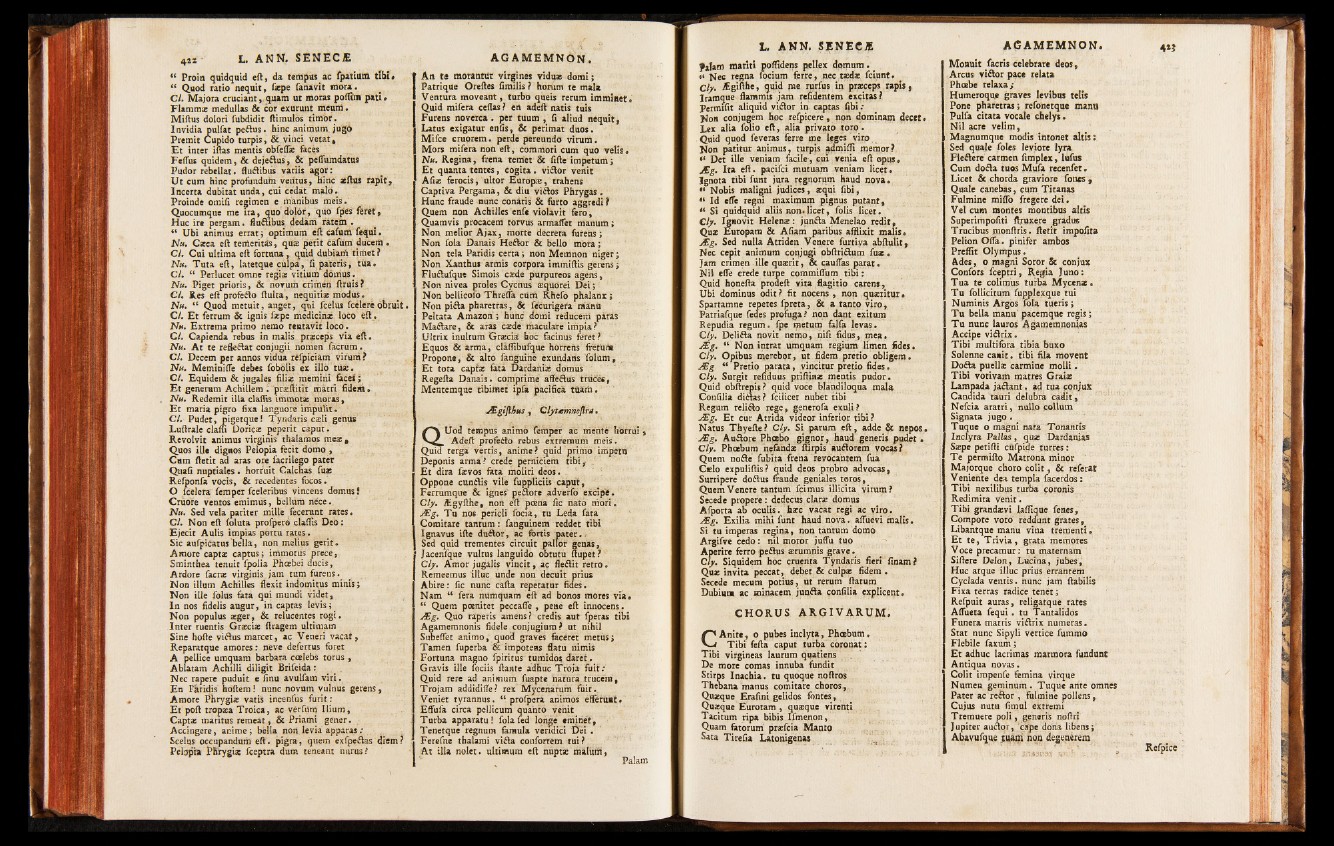 422 L. ANN. SENECÆ
“ Proin quidquid eſt, da tempus ac ſpatium tibi.
“ Quod ratio nequit, ſæpe ſanavit mora.
Cl. Majora cruciant, quam ut moras poſſim pati.
Flammæ medullas & cor exurunt meum.
Miſtus dolori ſubdidit ſtimulos timor.
Invidia pulſat pectus. hinc animum jugo
Premit Cupido turpis, & vinci vetat,
Et inter iſtas mentis obſeſſæ faces
Feſſus quidem, & dejectus, & peſſumdatus
Pudor rebellat. fluctibus variis agor:
Ut cum hinc profundum ventus, hinc æſtus rapit,
Incerta dubitat unda, cui cedat malo.
Proinde omiſi regimen e manibus meis.
Quocumque me ira, quo dolor, quo ſpes feret,
Huc ire pergam. fluctibus dedam ratem.
“ Ubi animus errat; optimum eſt caſum ſequi.
Nu. Cæca eſt temeritas, quæ petit caſum ducem.
Cl. Cui ultima eſt fortuna, quid dubiam timet?
Nu. Tuta eſt, latetque culpa, ſi pateris, tua.
Cl. “ Perlucet omne regiæ vitium domus.
Nu. Piget prioris, & novum crimen ſtruis?
Cl. Res eſt profecto ſtulta, nequitiæ modus.
Nu. “ Quod metuit, auget, qui ſcelus ſcelere obruit.
Cl. Et ferrum & ignis ſæpe medicinæ loco eſt.
Nu. Extrema primo nemo tentavit loco.
Cl. Capienda rebus in malis præceps via eſt.
Nu. At te reflectat conjugii nomen ſacrum.
Cl. Decem per annos vidua reſpiciam virum?
Nu. Meminiſſe debes ſobolis ex illo tuæ.
Cl. Equidem & jugales filiæ memini faces;
Et generum Achillem. præſtitit matri fidem.
Nu. Redemit illa claſſis immotæ moras,
Et maria pigro fixa languore impulit.
Cl. Pudet, pigetque! Tyndaris cæli genus
Luſtrale claſſi Doricæ peperit caput.
Revolvit animus virginis thalamos meæ,
Quos ille dignos Pelopia fecit domo,
Cum ſtetit ad aras ore ſacrilego pater
Quaſi nuptiales. horruit Calchas ſuæ
Reſponſa vocis, & recedentes focos.
O ſcelera ſemper ſceleribus vincens domus!
Cruore ventos emimus, bellum nece.
Nu. Sed vela pariter mille fecerunt rates.
Cl. Non eſt ſoluta proſpero claſſis Deo:
Ejecit Aulis impias portu rates.
Sic auſpicatus bella, non melius gerit.
Amore captæ captus; immotus prece,
Sminthea tenuit ſpolia Phœbei ducis,
Ardore ſacræ virginis jam tum furens.
Non illum Achilles flexit indomitus minis;
Non ille ſolus fata qui mundi videt,
In nos fidelis augur, in captas levis;
Non populus æger, & relucentes rogi.
Inter ruentis Græciæ ſtragem ultimam
Sine hoſte victus marcet, ac Veneri vacat,
Reparatque amores: neve deſertus foret
A pellice umquam barbara cœlebs torus,
Ablatam Achilli diligit Briſeida:
Nec rapere puduit e ſinu avulſam viri.
En Paridis hoſtem! nunc novum vulnus gerens,
Amore Phrygiæ vatis incenſus furit:
Et poſt tropæa Troica, ac verſum Ilium,
Captæ maritus remeat, & Priami gener.
Accingere, anime; bella non levia apparas:
Scelus occupandum eſt. pigra, quem exſpectas diem?
Pelopia Phrygiæ ſceptra dum teneant nurus?
AGAMEMNON.
An te morantur virgines viduæ domi;
Patrique Oreſtes ſimilis? horum te mala
Ventura moveant, turbo queis rerum imminet.
Quid miſera ceſſas? en adeſt natis tuis
Furens noverca. per tuum, ſi aliud nequit,
Latus exigatur enſis, & perimat duos.
Miſce cruorem. perde pereundo virum.
Mors miſera non eſt, commori cum quo velis.
Nu. Regina, frena temet & ſiſte impetum;
Et quanta tentes, cogita. victor venit
Aſiæ ferocis, ultor Europæ, trahens
Captiva Pergama, & diu victos Phrygas.
Hunc fraude nunc conaris & furto aggredi?
Quem non Achilles enſe violavit fero,
Quamvis procacem torvus armaſſet manum;
Non melior Ajax, morte decreta furens;
Non ſola Danais Hector & bello mora;
Non tela Paridis certa; non Memnon niger;
Non Xanthus armis corpora immiſtis gerens;
Fluctuſque Simois cæde purpureos agens,
Non nivea proles Cycnus æquorei Dei;
Non bellicoſo Threſſa cum Rheſo phalanx;
Non picta pharetras, & ſecurigera manu
Peltata Amazon; hunc domi reducem paras
Mactare, & aras cæde maculare impia?
Ultrix inultum Græcia hoc facinus feret?
Equos & arma, claſſibuſque horrens fretum
Propone, & alto ſanguine exundans ſolum,
Et tota captæ fata Dardaniæ domus
Regeſta Danais. comprime affectus truces,
Mentemque tibimet ipſa pacifica tuam.
Ægiſthus, Clytæmneſtra.
QUod tempus animo ſemper ac mente horrui,
Adeſt profecto rebus extremum meis.
Quid terga vertis, anime? quid primo impetu
Deponis arma? crede perniciem tibi,
Et dira ſævos fata moliri deos.
Oppone cunctis vile ſuppliciis caput,
Ferrumque & ignes pectore adverſo excipe.
Cly. Ægyſthe, non eſt pœna ſic nato mori.
Æg. Tu nos pericli ſocia, tu Leda ſata
Comitare tantum: ſanguinem reddet tibi
Ignavus iſte ductor, ac fortis pater.
Sed quid trementes circuit pallor genas,
Jacenſque vultus languido obtutu ſtupet?
Cly. Amor jugalis vincit, ac flectit retro.
Remeemus illuc unde non decuit prius
Abire: ſic nunc caſta repetatur fides.
Nam “ ſera numquam eſt ad bonos mores via.
“ Quem pœnitet peccaſſe, pene eſt innocens.
Æg. Quo raperis amens? credis aut ſperas tibi
Agamemnonis fidele conjugium? ut nihil
Subeſſet animo, quod graves faceret metus;
Tamen ſuperba & impotens flatu nimis
Fortuna magno ſpiritus tumidos daret.
Gravis ille ſociis ſtante adhuc Troja fuit:
Quid rere ad animum ſuapte natura trucem,
Trojam addidiſſe? rex Mycenarum fuit.
Veniet tyrannus. “ proſpera animos efferunt.
Effuſa circa pellicum quanto venit
Turba apparatu! ſola ſed longe eminet,
Tenetque regnum famula veridici Dei.
Fereſne thalami victa conſortem tui?
At illa nolet. ultimum eſt nuptæ malum,
Palam
L. ANN. SENECÆ
Palam mariti poſſidens pellex domum.
“ Nec regna ſocium ferre, nec tædæ ſciunt.
Cly. Ægiſthe, quid me rurſus in præceps rapis,
Iramque flammis jam reſidentem excitas?
Permiſit aliquid victor in captas ſibi:
Non conjugem hoc reſpicere, non dominam decet.
Lex alia ſolio eſt, alia privato toro.
Quid quod ſeveras ferre me leges viro
Non patitur animus, turpis admiſſi memor?
“ Det ille veniam facile, cui venia eſt opus.
Æg. Ita eſt. paciſci mutuam veniam licet.
Ignota tibi ſunt jura regnorum haud nova.
“ Nobis maligni judices, æqui ſibi,
“ Id eſſe regni maximum pignus putant,
“ Si quidquid aliis non licet, ſolis licet.
Cly. Ignovit Helenæ: juncta Menelao redit,
Quæ Europam & Aſiam paribus afflixit malis.
Æg. Sed nulla Atriden Venere furtiva abſtulit,
Nec cepit animum conjugi obſtrictum ſuæ.
Jam crimen ille quærit, & cauſſas parat.
Nil eſſe crede turpe commiſſum tibi:
Quid honeſta prodeſt vita flagitio carens,
Ubi dominus odit? fit nocens, non quæritur.
Spartamne repetes ſpreta, & a tanto viro,
Patriaſque ſedes profuga? non dant exitum
Repudia regum. ſpe metum falſa levas.
Cly. Delicta novit nemo, niſi fidus, mea.
Æg. “ Non intrat umquam regium limen fides.
Cly. Opibus merebor, ut fidem pretio obligem.
Æg “ Pretio parata, vincitur pretio fides.
Cly. Surgit reſiduus priſtinæ mentis pudor.
Quid obſtrepis? quid voce blandiloqua mala
Conſilia dictas? ſcilicet nubet tibi
Regum relicto rege, generoſa exuli?
Æg. Et cur Atrida videor inferior tibi?
Natus Thyeſte? Cly. Si parum eſt, adde & nepos.
Æg. Auctore Phœbo gignor, haud generis pudet.
Cly. Phœbum nefandæ ſtirpis auctorem vocas?
Quem nocte ſubita frena revocantem ſua
Cælo expuliſtis? quid deos probro advocas,
Surripere doctus fraude geniales toros,
Quem Venere tantum ſcimus illicita virum?
Secede propere: dedecus claræ domus
Aſporta ab oculis. hæc vacat regi ac viro.
Æg. Exilia mihi ſunt haud nova. aſſuevi malis.
Si tu imperas regina, non tantum domo
Argiſve cedo: nil moror juſſu tuo
Aperire ferro pectus ærumnis grave.
Cly. Siquidem hoc cruenta Tyndaris fieri ſinam?
Quæ invita peccat, debet & culpæ fidem.
Secede mecum potius, ut rerum ſtatum
Dubium ac minacem juncta conſilia explicent.
CHORUS ARGIVARUM.
CAnite, o pubes inclyta, Phœbum.
Tibi feſta caput turba coronat:
Tibi virgineas laurum quatiens
De more comas innuba fundit
Stirps Inachia. tu quoque noſtros
Thebana manus comitare choros,
Quæque Eraſini gelidos fontes,
Quæque Eurotam, quæque virenti
Tacitum ripa bibis Iſmenon,
Quam fatorum præſcia Manto
Sata Tireſia Latonigenas
AGAMEMNON. 423
Monuit ſacris celebrare deos,
Arcus victor pace relata
Phœbe relaxa;
Humeroque graves levibus telis
Pone pharetras; reſonetque manu
Pulſa citata vocale chelys.
Nil acre velim,
Magnumque modis intonet altis:
Sed quale ſoles leviore lyra
Flectere carmen ſimplex, luſus
Cum docta tuos Muſa recenſet.
Licet & chorda graviore ſones,
Quale canebas, cum Titanas
Fulmine miſſo fregere dei.
Vel cum montes montibus altis
Superimpoſiti ſtruxere gradus
Trucibus monſtris. ſtetit impoſita
Pelion Oſſa. pinifer ambos
Preſſit Olympus.
Ades, o magni Soror & conjux
Conſors ſceptri, Regia Juno:
Tua te colimus turba Mycenæ.
Tu ſollicitum ſupplexque tui
Numinis Argos ſola tueris;
Tu bella manu pacemque regis;
Tu nunc lauros Agamemnonias
Accipe victrix.
Tibi multifora tibia buxo
Solenne canit. tibi fila movent
Docta puellæ carmine molli.
Tibi votivam matres Graiæ
Lampada jactant. ad tua conjux
Candida tauri delubra cadit,
Neſcia aratri, nullo collum
Signata jugo.
Tuque o magni nata Tonantis
Inclyra Pallas, quæ Dardanias
Sæpe petiſti cuſpide turres:
Te permiſto Matrona minor
Majorque choro colit, & reſerat
Veniente dea templa ſacerdos:
Tibi nexilibus turba coronis
Redimita venit.
Tibi grandævi laſſique ſenes,
Compote voto reddunt grates,
Libantque manu vina trementi.
Et te, Trivia, grata memores
Voce precamur: tu maternam
Siſtere Delon, Lucina, jubes,
Huc atque illuc prius errantem
Cyclada ventis. nunc jam ſtabilis
Fixa terras radice tenet;
Reſpuit auras, religatque rates
Aſſueta ſequi. tu Tantalidos
Funera matris victrix numeras.
Stat nunc Sipyli vertice ſummo
Flebile ſaxum;
Et adhuc lacrimas marmora fundunt
Antiqua novas.
Colit impenſe femina virque
Numen geminum. Tuque ante omnes
Pater ac rector, fulmine pollens,
Cujus nutu ſimul extremi
Tremuere poli, generis noſtri
Jupiter auctor, cape dona libens;
Abavuſque tuam non degenerem
Reſpice